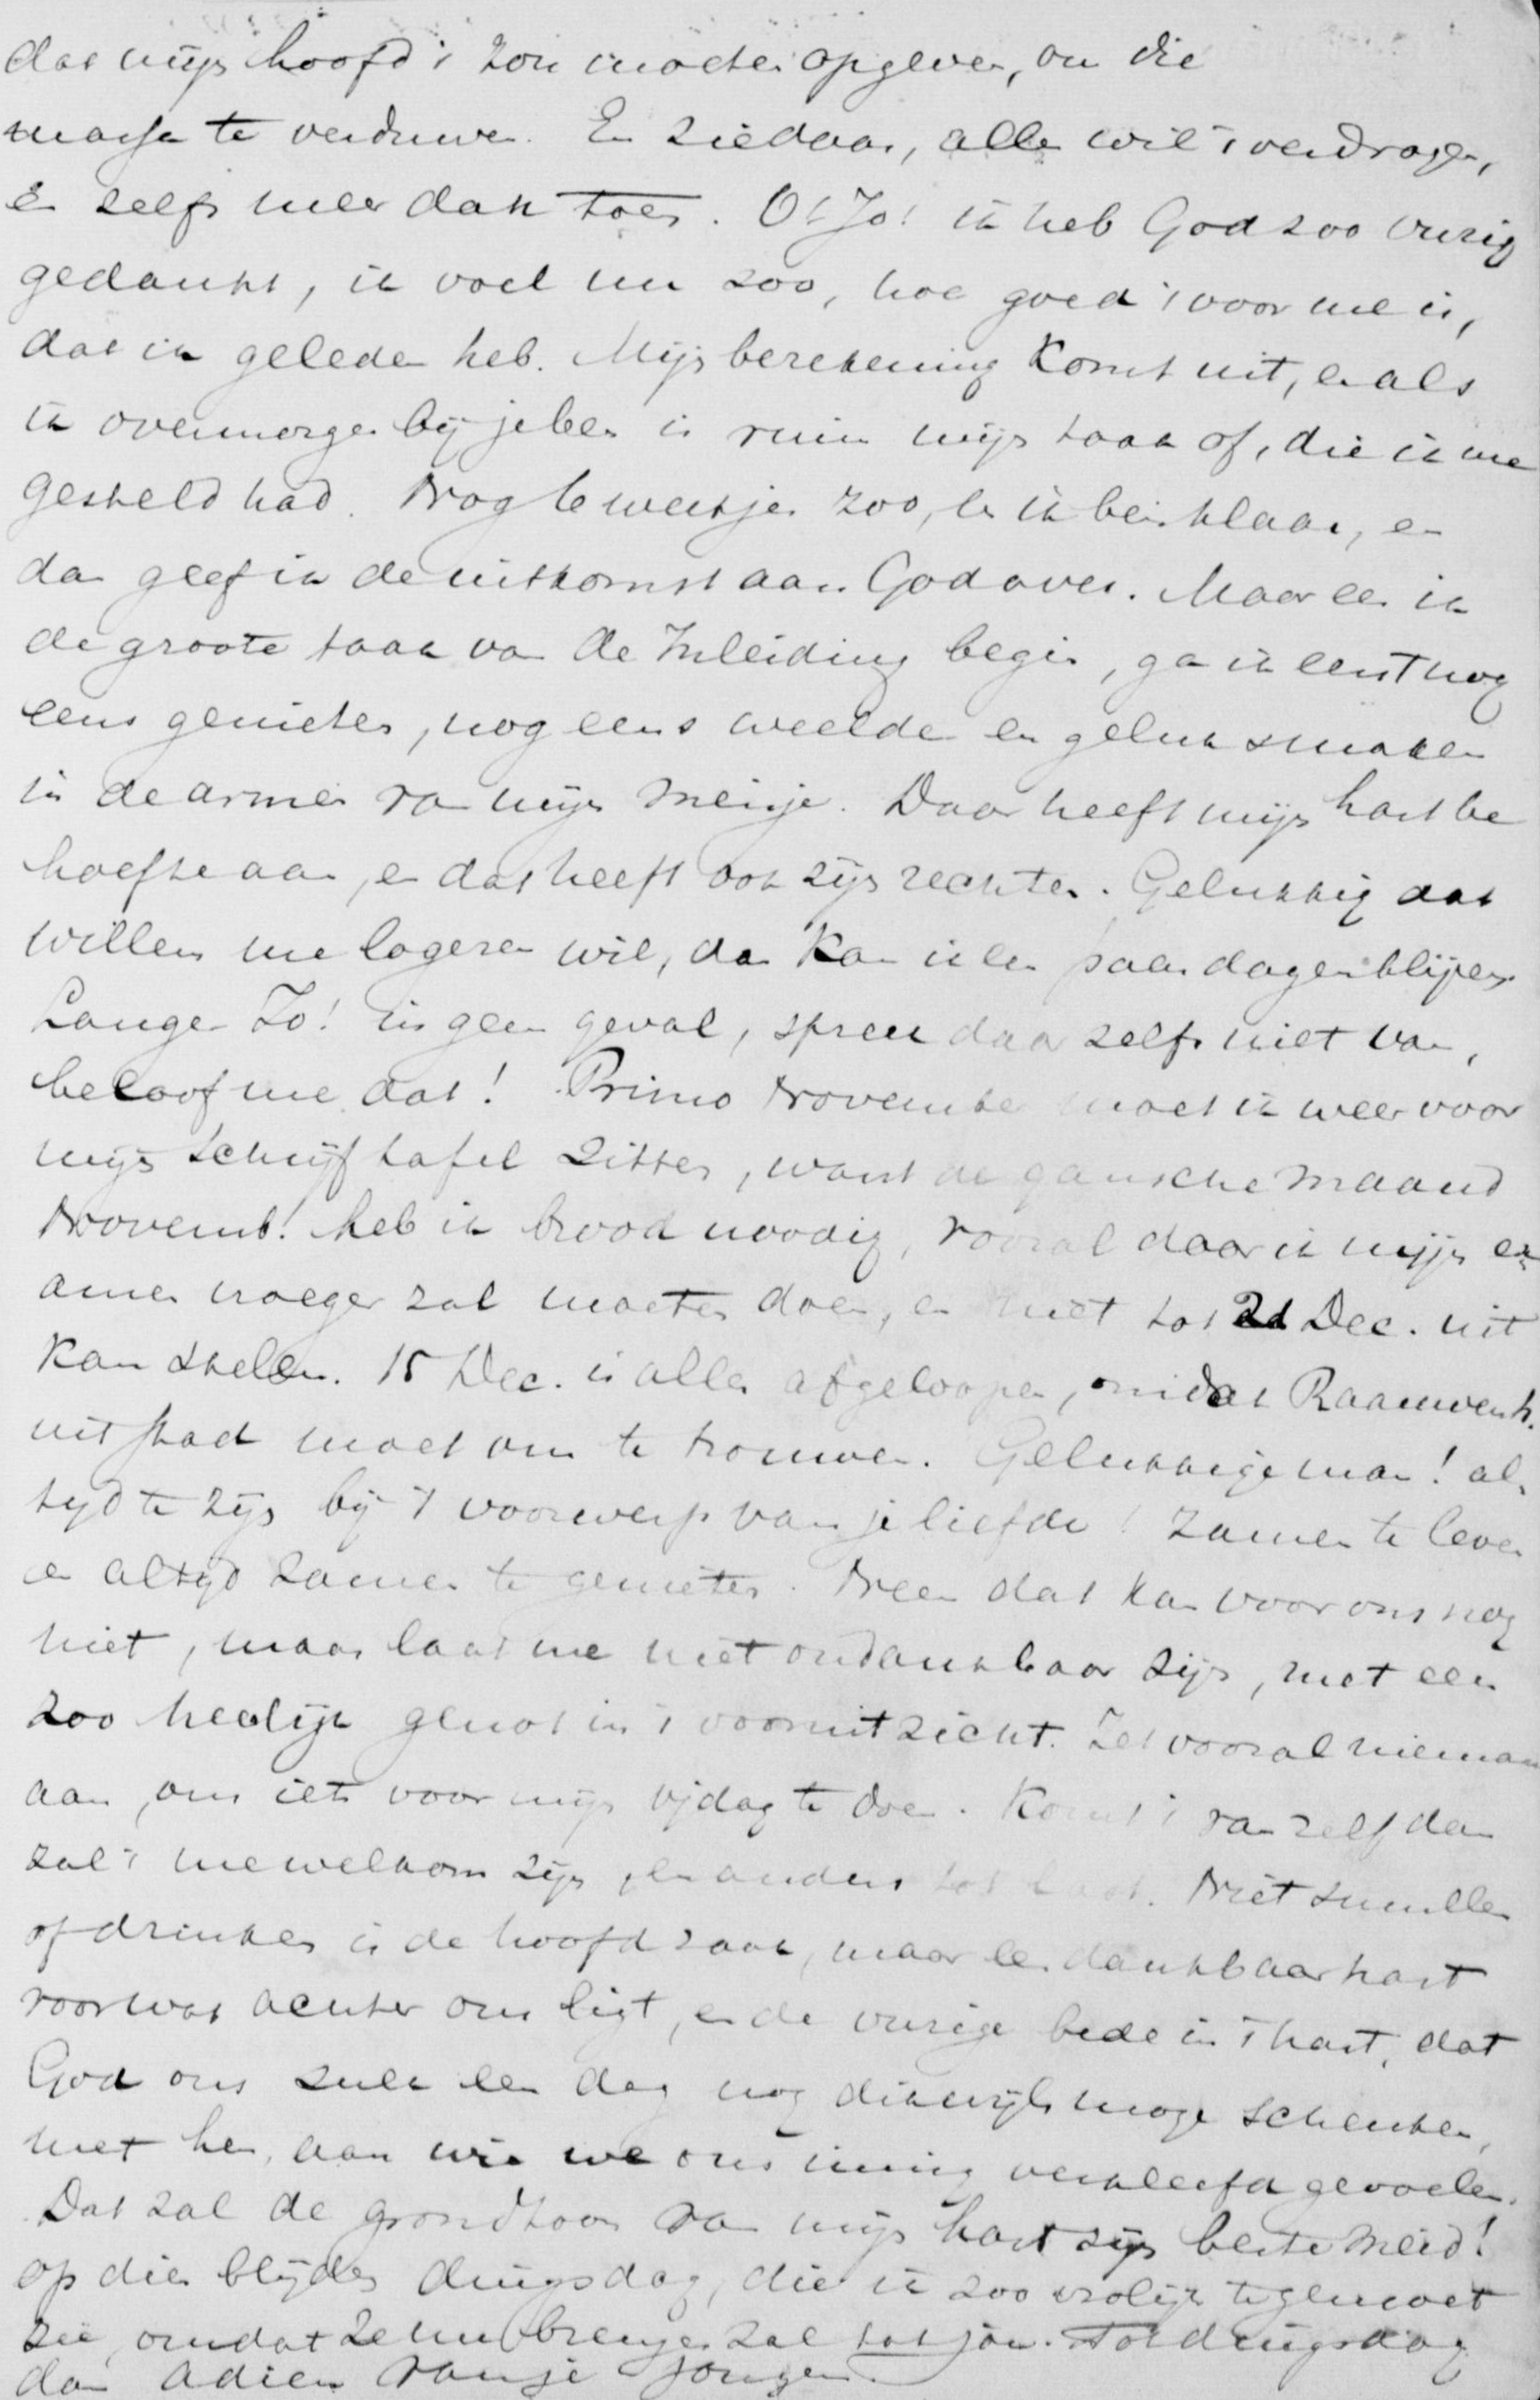 dat mijn hoofd 't zou moeten opgeven, om die
massa te verduwen. En ziedaar, alles wil 't verdragen,
en zelfs meer dan toen. O! Jo! ik heb God zoo vurig
gedankt, ik voel nu zoo, hoe goed 't voor me is,
dat ik geleden heb. Mijn berekening komt uit, en als
ik overmorgen bij je ben is ruim mijn taak af, die ik me
gesteld had. Nog 6 weekjes zoo, en ik ben klaar, en
dan geef ik de uitkomst aan God over. Maar eer ik
de groote taak van de Inleiding begin, ga ik eerst nog
eens genieten, nog eens weelde en geluk smaken
in de armen van mijn meisje. Daar heeft mijn hart be
hoefte aan, en dat heeft ook zijn rechten. Gelukkig dat
Willem me logeren wil, dan kan ik een paar dagen blijven.
Langer Jo! in geen geval, spreek daar zelfs niet van,
beloof me dat! Primo November moet ik weer voor
mijn schrijftafel zitten, want de gansche maand
Novemb! heb ik brood noodig, vooral daar ik mijn ex
amen vroeger zal moeten doen, en niet tot 21 Dec. uit
kan stellen. 15 Dec. is alles afgeloopen, omdat Raauwenh.
uit stad moet om te trouwen. Gelukkige man! al,
tyd te zijn bij 't voorwerp van je liefde! Zamen te leven
en altijd zamen te genieten. Neen dat kan voor ons nog
niet, maar laat me niet ondankbaar zijn, met een
zoo heerlijk genot in 't vooruitzicht. Zet vooral nieman
aan, om iets voor mijn vjdag te doen. Komt 't van zelf dan
zal 't me welkom zijn, en anders tot last. Niet smullen
of drinken is de hoofdzaak, maar een dankbaar hart
voor wat achter ons ligt, en de vurige bede in 't hart, dat
God ons zulk een dag nog dikwijls moge schenken,
met hen, aan wie we ons innig verkleefd gevoelen.
Dat zal de grondtoon van mijn hart zijn beste meid!
op dien blijden dingsdag, dien ik zoo vrolijk tegemoet
zie, omdat ze me brengen zal tot jou. Tot dingsdag
dan adieu van je jongen.